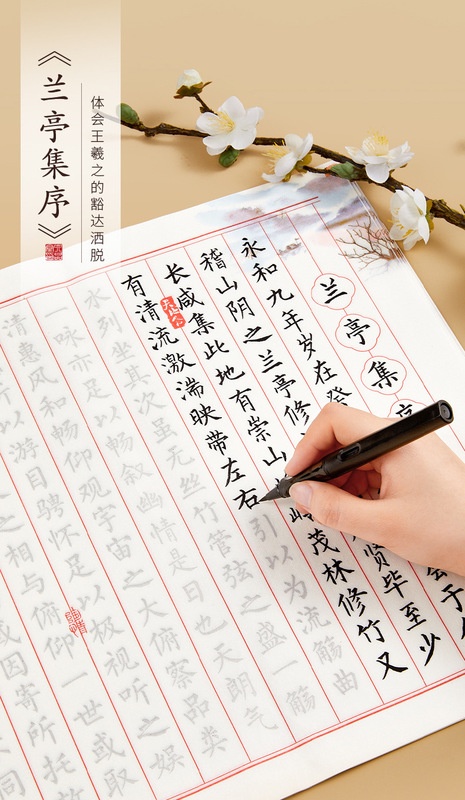 《兰亭集序》
体会王羲之的豁达洒脱
兰亭集序
永和九年岁在癸
会于
稽山阴之兰亭修
贤毕至少
长咸集此地有崇山
岭茂林修竹又
有清流激湍映带左右引以为流觞曲
水列坐其次虽无丝竹管弦之盛一觞
一咏亦足以畅叙幽情是日也天朗气
清惠风和畅仰观宇宙之大俯察品类
以游目骋怀足以极视听之娱
之相与俯仰一世或取
或因寄所托放
同